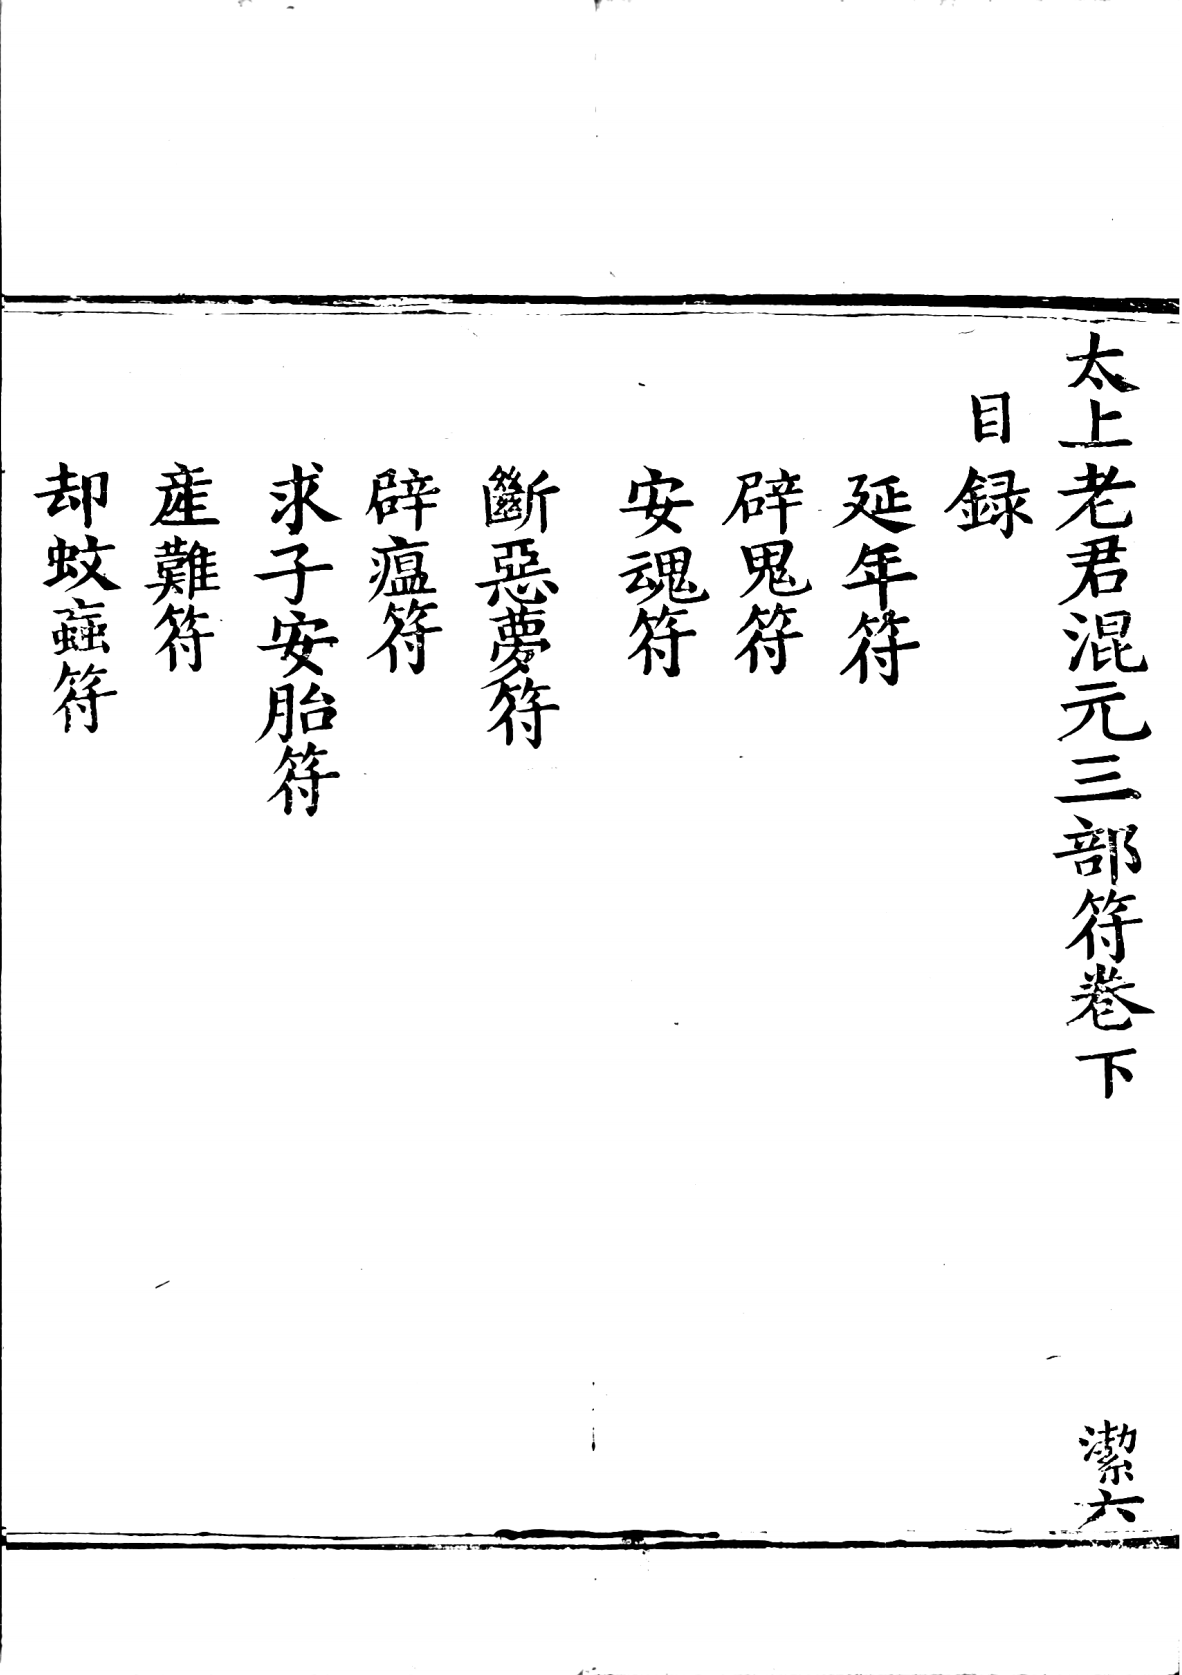 太上老君混元三部符卷下
潔六
目録
延年符
辟鬼符
安魂符
斷惡夢符
辟瘟符
求子安胎符
産難符
却蚊蝱符